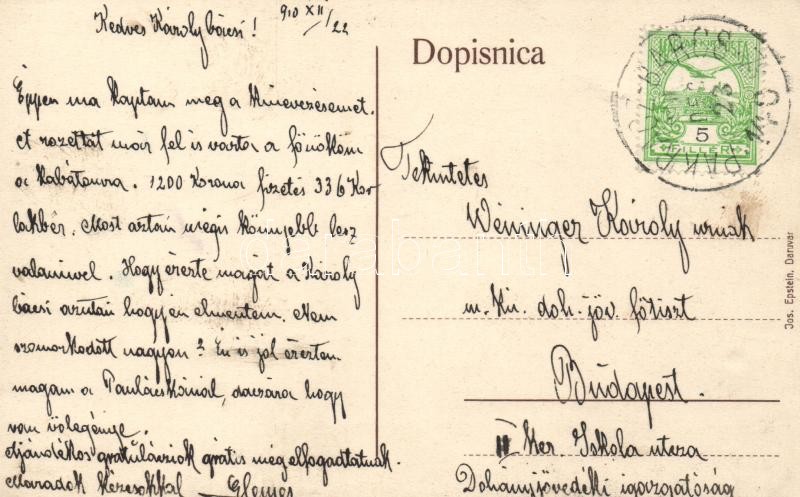 Kedves Károly bácsi! 910 XII/22
Éppen ma kaptam meg a kinevezésemet.
A rozettát már fel is varta a főnököm
a kabátomra. 1200 Korona fizetés 336 Kor
lakbér. Most aztán mégis könnyebb lesz
valamivel. Hogy érezte magát a Károly
bácsi azután hogy én elmentem. Nem
szomorkodott nagyon? Én is jól éreztem
magam a, daczára hogy
van vőlegénye.
Ajándékos gratulácziók grátis meg elfogadtatnak.
Maradok kézcsókkal
Dopisnica
5
FILLÉR
Tekintetes
Weninger Károly urnak
m. kir. doh. jöv. főtiszt
Budapest.
II Ker. Iskola utcza
Dohányjövedéki igazgatóság
Jos. Epstein, Daruvar
darabanth